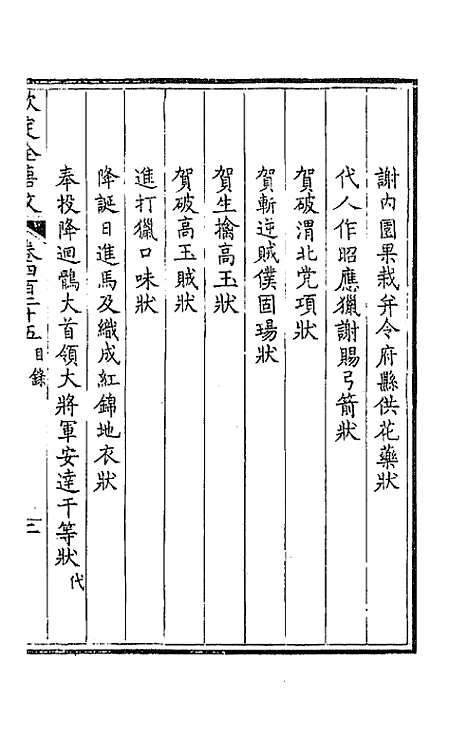 謝内園果栽弁令府縣供花藥狀
代人作昭應獵謝賜弓箭狀
賀破渭北党項狀
賀斬逆賊僕固瑒狀
賀生擒高玉狀
賀破高玉賊狀
進打獵口味狀
降誕日進馬及織成紅錦地衣狀
奉投降迴鶻大首領大將軍安達干等狀 代
欽定全唐文 卷四百二十五 目錄 三